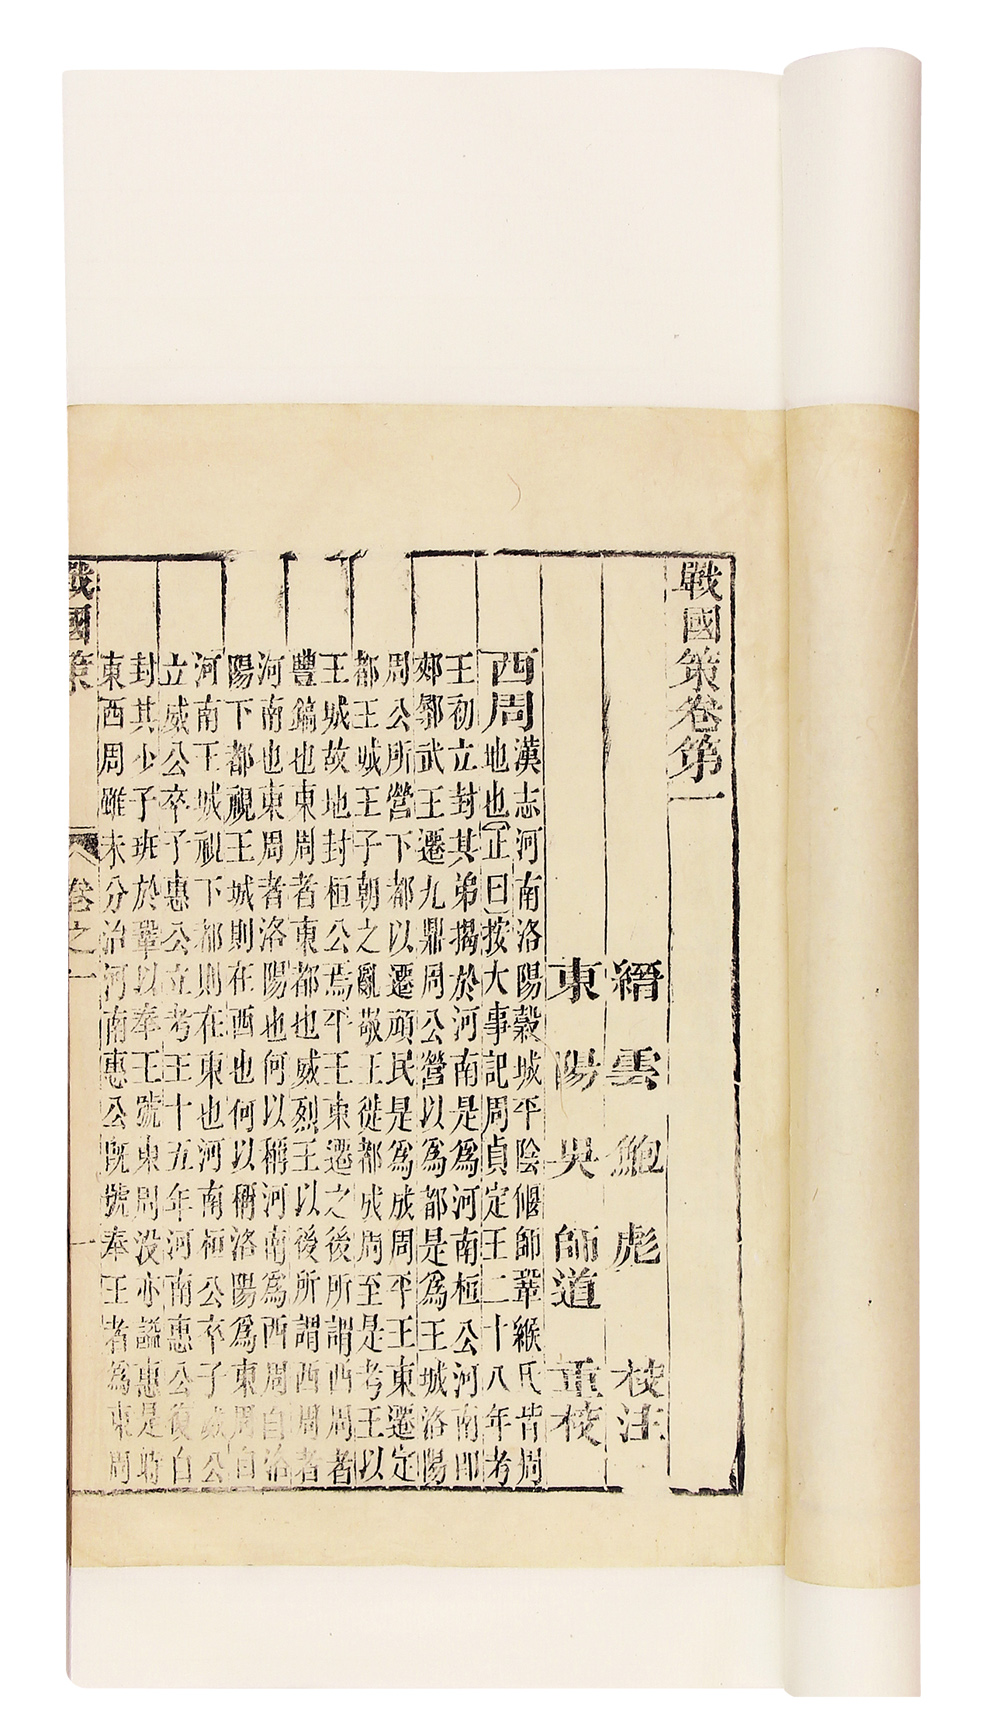 戰國策卷第一
縉雲鮑彪校注
東陽吳師道重校
西周
漢志河南洛陽穀城平陰偃師鞏緱氏皆周
地也正曰按大事記周貞定王二十八年考
王初立封其弟揭於河南是爲河南桓公河南即
郟鄏武王遷九鼎周公營以爲都是爲王城洛陽
周公所營下都以遷頑民是爲成周平王東遷定
都王城王子朝之亂敬王徙都成周至是考王以
王城故地封桓公焉平王東遷之後所謂西周者
豐鎬也東周者東都也威烈王以後所謂西周者
河南也東周者洛陽也何以稱河南爲西周自洛
陽下都視王城則在西也何以稱洛陽爲東周自
河南王城視下都則在東也河南桓公卒子威公
立威公卒子惠公立考王十五年河南惠公復自
封其少子班於鞏以奉王號東周没亦諡惠是時
東西周雖未分治河南惠公旣號奉王者爲東周
戰國策 卷之一 一